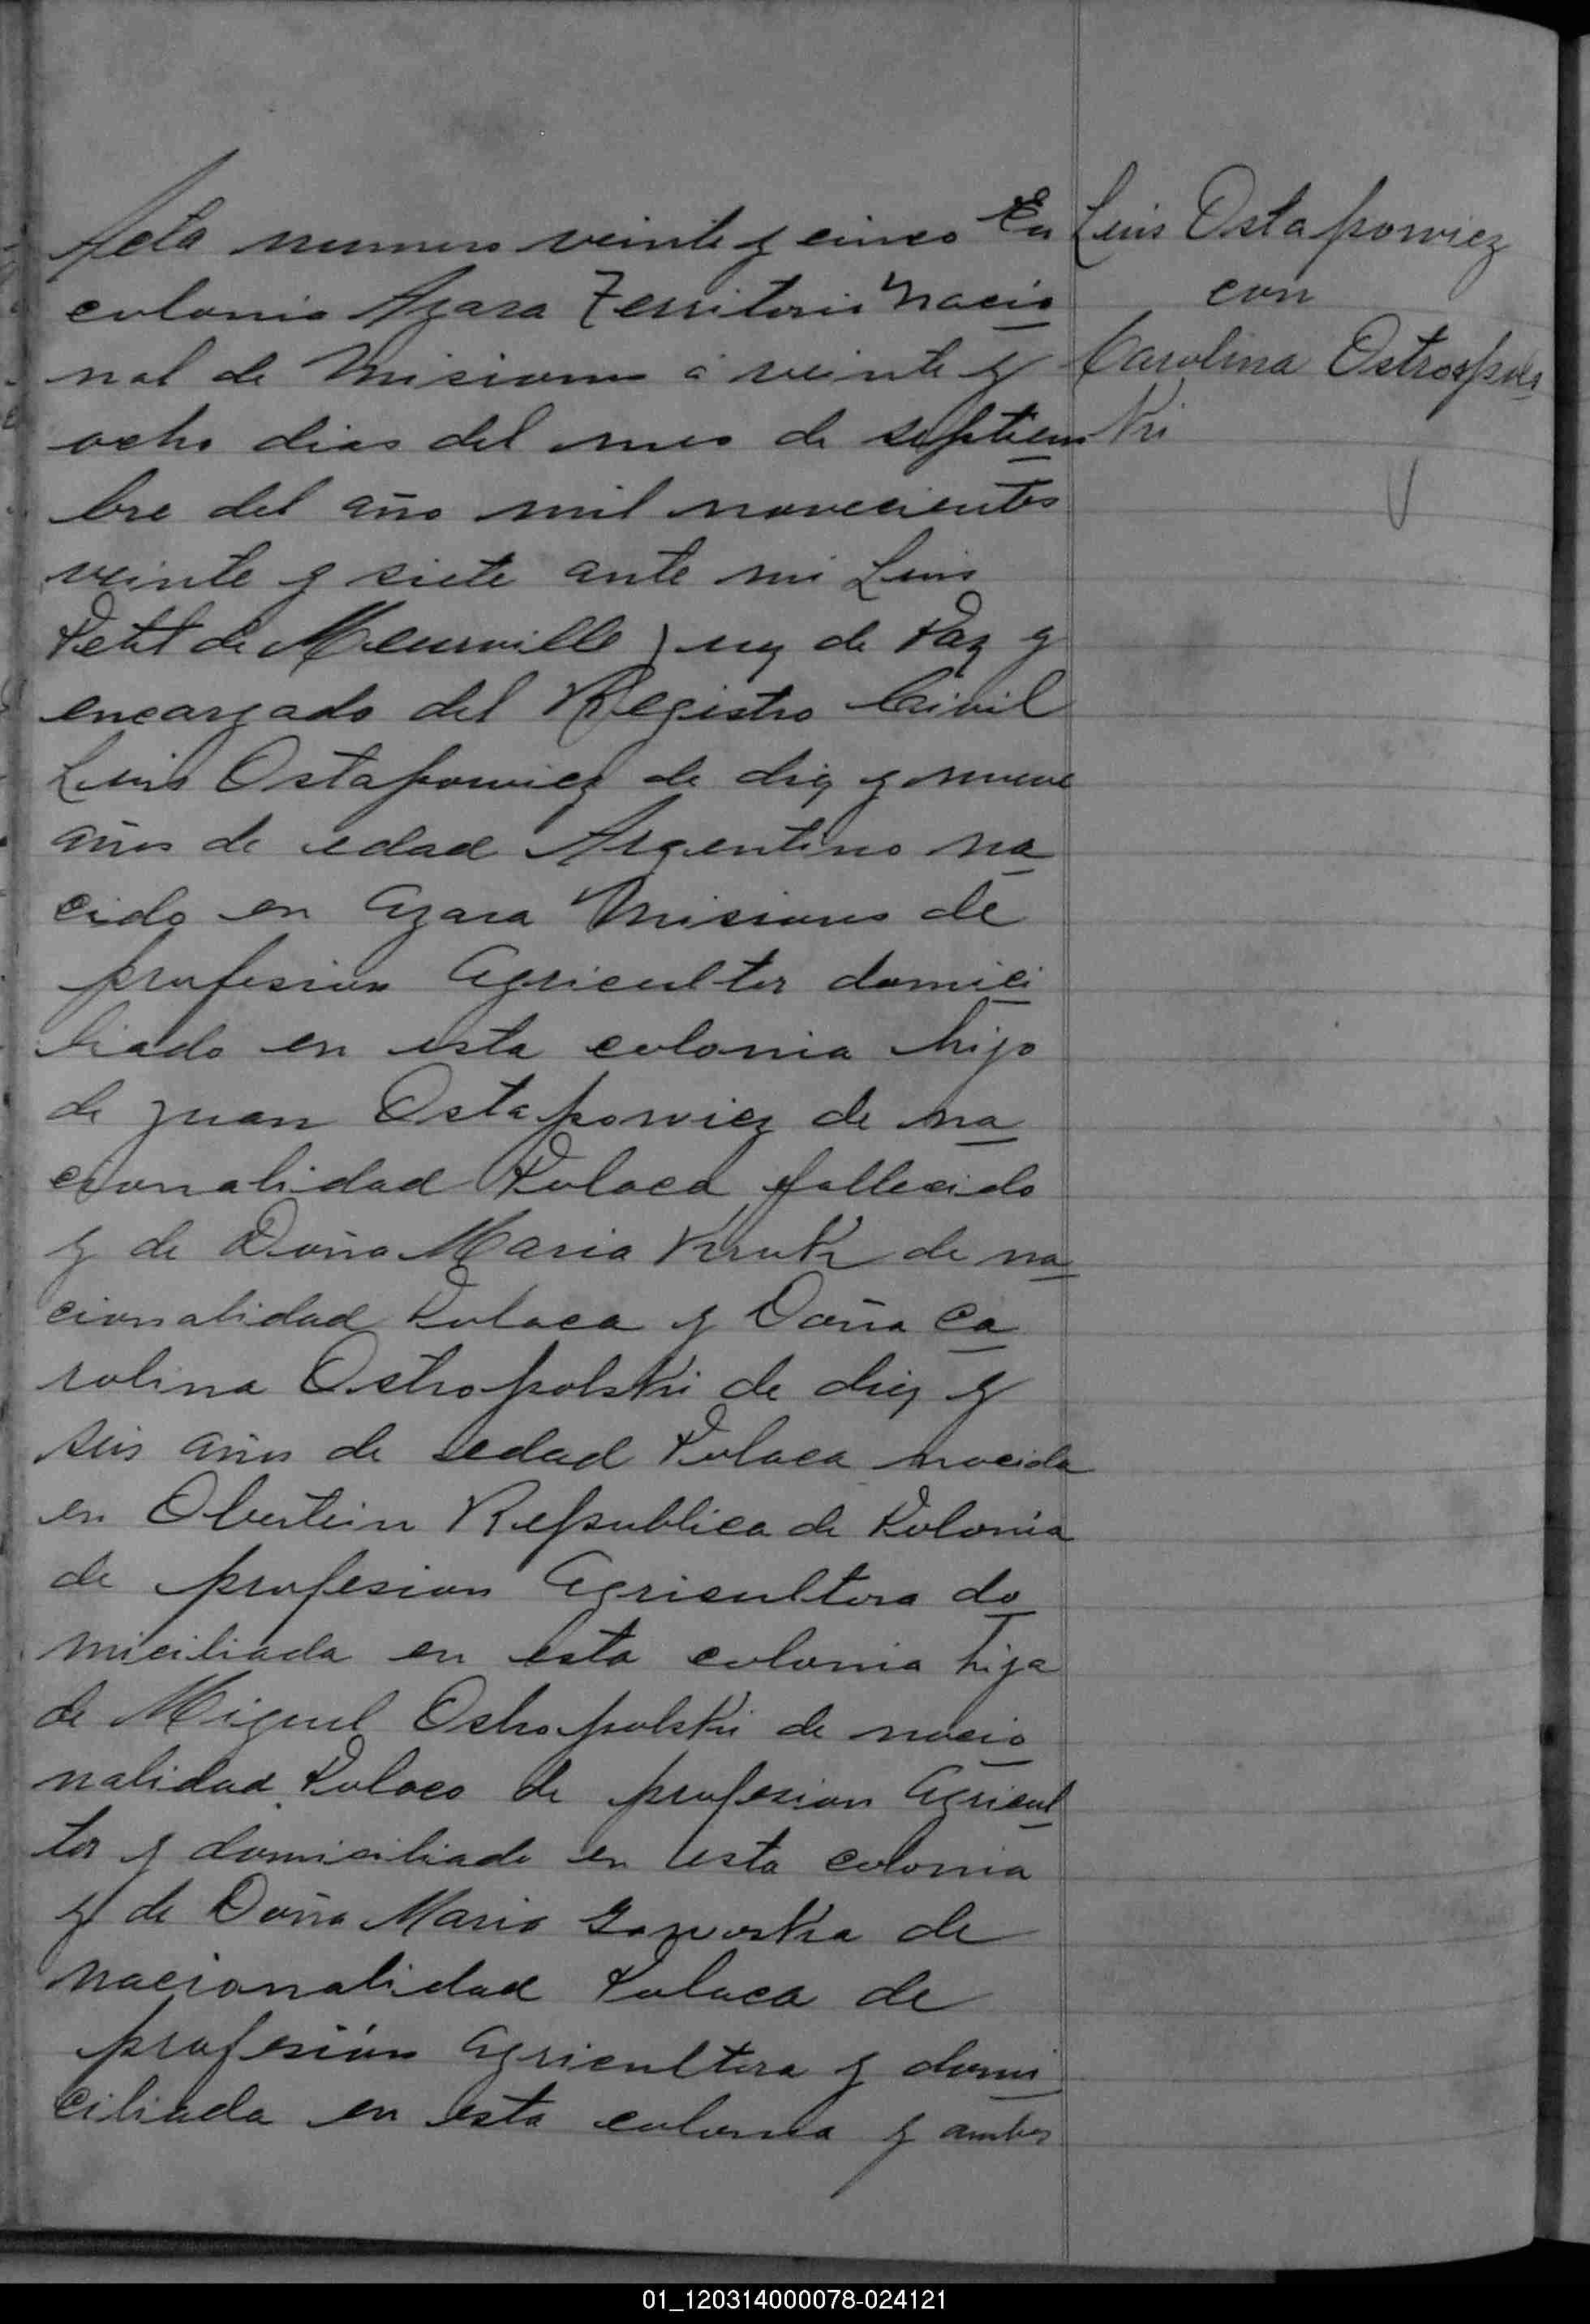 Acta numero veinte y cinco En
colonia Azara Territorio Nacio
nal de Misiones a veinte y
ocho dias del mes de septiem
bre del año mil novecientos
veinte y siete ante mi Luis
Petit de Meurville Juez de Paz y
encargado del Registro Civil
Luis Ostapowicz de diez y nueve
años de edad Argentino na
cido en Azara Misiones de
profesion Agricultor domici
liado en esta colonia hijo
de Juan Ostapowicz de na
cionalidad Polaca fallecido
y de Doña Maria Kruk de na
cionalidad Polaca y Doña Ca
rolina Ostropolski de diez y
seis años de edad Polaca nacida
en Obertein Republica de Polonia
de profesion Agricultora do
miciliada en esta colonia hija
de Miguel Ostropolski de nacio
nalidad Polaco de profesion Agricul
tor y domiciliado en esta colonia
y de Doña Maria de
nacionalidad Polaca de
profesión agricultora y domi
ciliada en esta colonia y ambos
Luis Ostapowicz
con
Carolina Ostrospols
ki
01_120314000078-024121